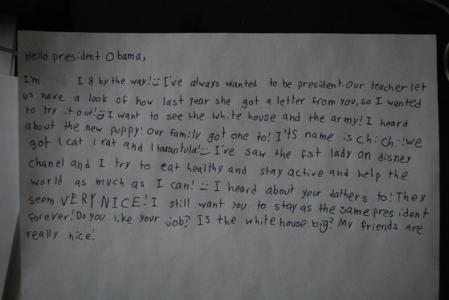 Hello president Obama,
I'm I 8 by the way! I've always wanted to be president. Our teacher let
us have a look of how last year she got a letter from you, so I wanted
to try it out! I want to see the white house and the army! I heard
about the new puppy! Our family got one to! It's name is chichi! we
got 1 cat 1 rat and 1 tarantula! I've saw the f3t lady on disney
chanel and I try to eat healthy and stay active and help the
world as much as I can! I heard about your dathers to! They
seem VERY NICE! I still want you to stay as the same president
forever! Do you like your job? Is the white house big? My friends are
really nice!